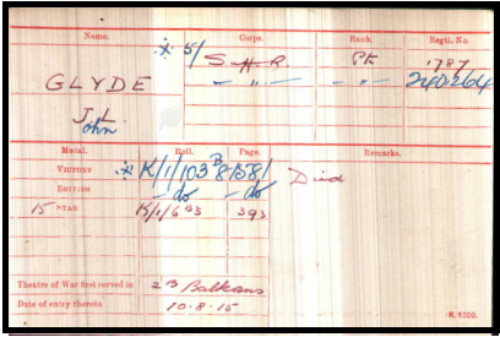 Name. Corps. Rank. Regtl. No.
* 5/ S. H. R. Pte 1787
GLYDE — " — — " — 240264
J. L.
John
Medal. Roll. Page. Remarks.
VICTORY * K/1/103 B8 1581 Died
BRITISH — do — do
15 STAR K/1/6 393
Theatre of War first served in 2B Balkans
Date of entry therein 10.8.15
K. 1380.